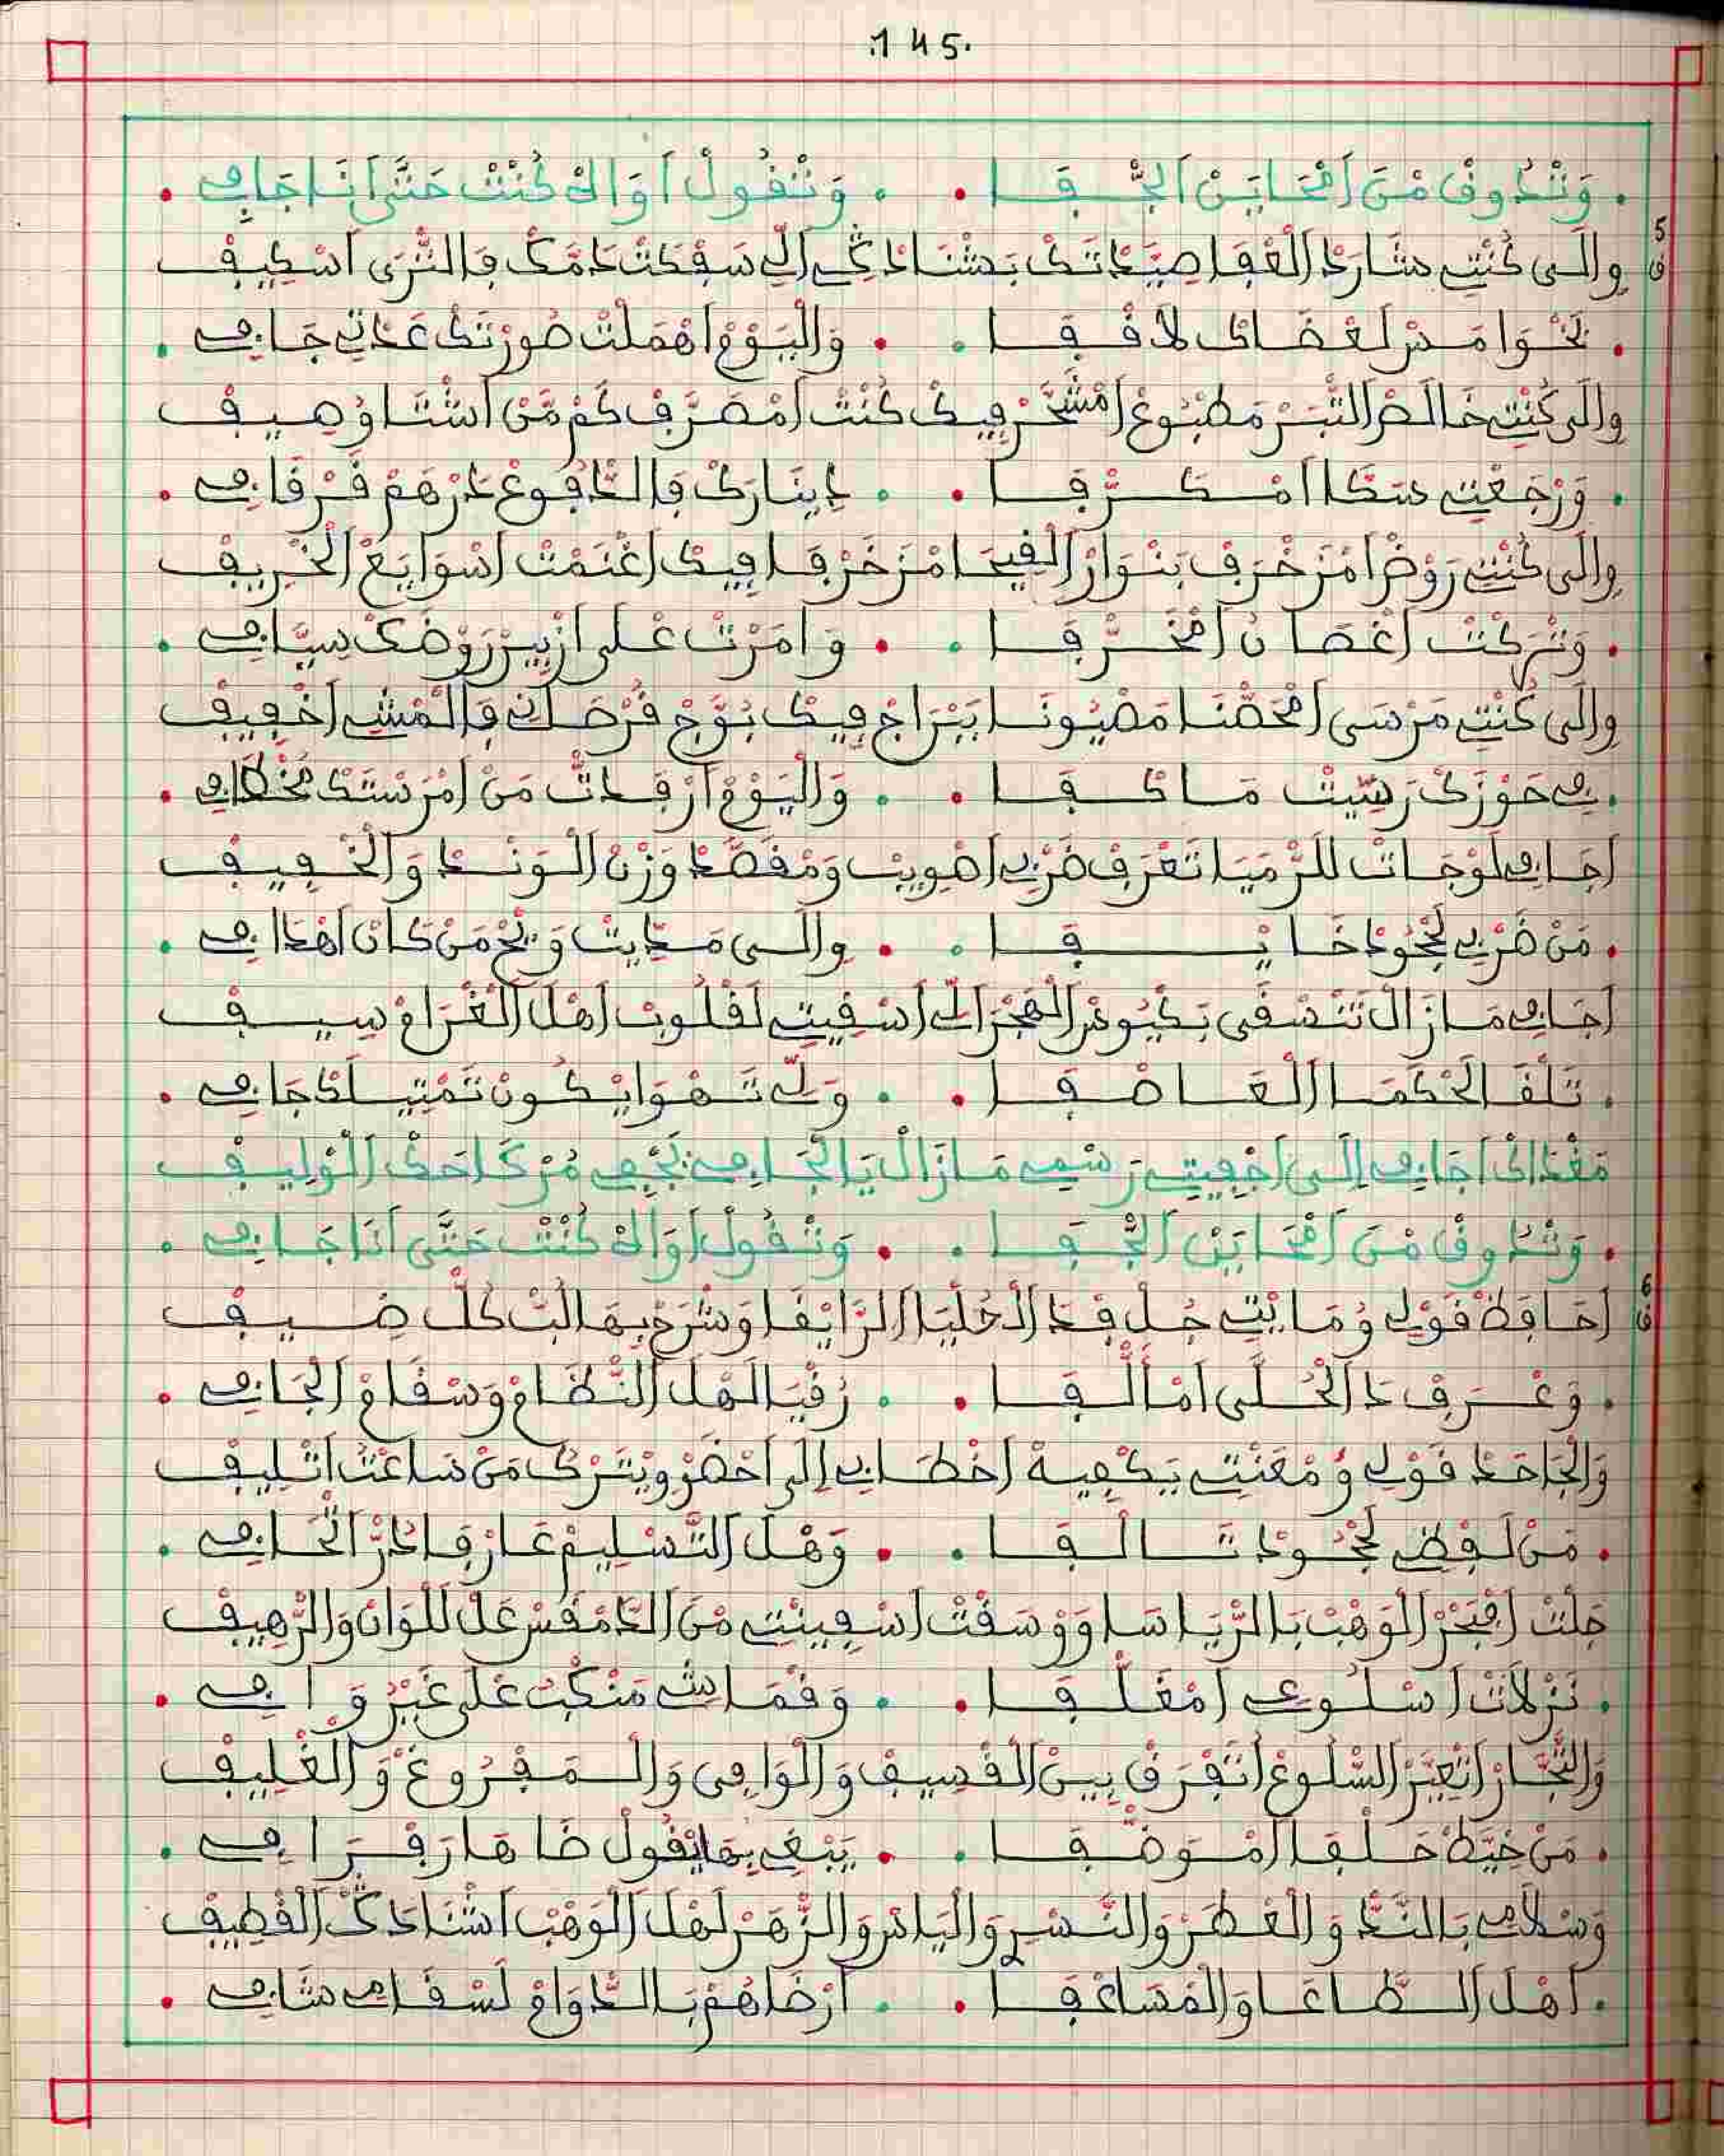 .145.
. وَتْدُوقْ مْنَ اَمْحَايَنْ اَلجْفَا . . وَتْقُولْ اَوَاكْ كُنْتْ حَتَّى اَنَا جَافِي .
5 ف وِالَى كُنْتِ شَارَدْ اَلْعْفَا صِيَّادَتَكْ بَشْنَادَكِ اَلِّي سَفْكَتْ دَمَّكْ فَالتْرَى اَسْكِيفْ
. نَحْوَا مَسْ لَعْضَاكْ لاَفْقَا . . وَالْيَوْمْ اَهْمَلْتْ صُورْتَكْ عَدْتِ جَافِي .
وِالَى كُنْتِ خَالَصْ اَلتْبَرْ مَطْبُوعْ اَمْشَحَّرْ فِيكْ كُنْتْ اَمْصَرَّفْ كَمْ مَنْ اَشْتَا وْصِيفْ
. وَرْجَعْتِ سَكَّا اَمْكَرّْفَا . . دِينَارَكْ فَالدْفُوعْ دَرْهَمْ قَرْقَافِي .
وِالَى كُنْتِ رَوْضْ اَمْزَخْرَفْ بَنْوَارْ اَلْفِيحَا مْزَخَرْفَا فِيكْ اَغْنَمْتْ اَسْوَايَعْ اَلخْرِيفْ
. وَتْرَكْتْ اَغْصَانْ اَمْخَرّْفَا . . وَامَرْتْ عْلَى ازْبِيرْ رَوْضَكْ سِيَّافِي .
وِالَى كُنْتِ مَرْسَى اَمْحَصّْنَا مَصْيُونَا بَبْرَاجْ فِيكْ بَوَّجْ قُرْصَانِي فَالْمْشِي اَخْفِيفْ
. فِي حَوْزَكْ رَسِّيتْ مَا كْفَا . . وَالْيَوْمْ اَرْفَدْتْ مَنْ اَمْرَسْتَكْ مُخْطَافِي .
اَجَافِي لَوْ جَاتْ للرّْمَيَا تَعْرَفْ ضَرْبِي اَصْوِيبْ وَمْقَصَّدْ وَزْنْ اَلْوَسْطْ وَالخْفِيفْ
. مَنْ ضَرْبِي لَجْحُودْ خَايْفَا . . وِالَى مَدِّيتْ وِيحْ مَنْ كَانْ اَهْدَافِي .
اَجَافِي مَازَالْ تَنْسْقَى بَكْيُوسْ اَلْهَجْرَ الِّي اَسْقِيتِ لَقْلُوبْ اَهْلَ اَلْغْرَامْ سِيفْ
. تَلْقَى لَحْكَمَا اَلْعَاصْفَا . . وَلِّي تَهْوَا يْكُونْ تَمْتِيلَكْ جَافِي .
مَعْدَاكْ اَجَافِي اِلَى اَجْفِيتِ رَسْمِي مَازَالْ يَا الْجَافِي نَجْفِي مُرْكَاحَكْ اَلْوْلِيفْ
. وَتْدُوقْ مْنَ اَمْحَايَنْ اَلجْفَا . . وَتْقُولْ اَوَاكْ كُنْتْ حَتَّى اَنَا جَافِي .
6 ف اَحَافَظْ قَوْلِي وُمَايْتِي جُلْ فْدَ اَلْحُلْيَا اَلرَّايْقَا وَشْرَحْ بِهَا لْبْ كُلّْ ضِيفْ
. وَعْرَفْ دَ اَلْحُلَّى اَمْأَلّْفَا . . رُقْيَا لَهْلَ اَلنّْظَامْ وَسْقَامْ اَلْجَافِي .
وَالْجَاحَدْ قَوْلِي وُمْعَنْتِ يَكْفِيهْ اَخْطَابِي اِلَى اَحْضَرْ وِيَتْرَكْ مَنْ سَاعْتُ اَتْلِيفْ
. مَنْ لَفْظِي لَجْحُودْ تَالْفَا . . وَهْلَ اَلتَّسْلِيمْ عَارْفَا دُرّْ اَتْحَافِي .
جَلْتْ اَفْبْحَرْ اَلْوَهْبْ بَالرِّيَاسَا وَوْسَقْتْ اَسْفِينْتِي مْنَ اَلدّْمْقَسْ عَلْ لَلْوَانْ وَالرّْهِيفْ
. نَزْلاَتْ اَسْلُوعِي اَمْغَلّْفَا . . وَقْمَاشْ مَنْكَبْ عْلَى عَبْرُ وَافِي .
وَالتّْجَارْ اَتْعَبَّرْ اَلسّْلُوعْ اَتْفَرَقْ بِينْ اَلْقْصِيفْ وَالْوَافِي وَالْمَفْرُوغْ وَالْغْلِيفْ
. مَنْ خِيَّطْ حَلْفَا اَمْوَضّْفَا . . يَبْغِي بِهَا يْقُولْ ضَاهَا رَفْرَافِي .
وَسْلاَمِي بَالنَّدّْ وَالْعْطَرْ وَالنَّسْرِي وَالْيَاسْ وَالزّْهَرْ لَهْلَ اَلْوَهْبْ اَشْنَادَكْ اَلْقْطِيفْ
. اَهْلَ اَلطَّاعَا وَالْمْسَاعْفَا . . اَرْضَاهُمْ بَالدّْوَامْ لَسْقَامِي شَافِي .